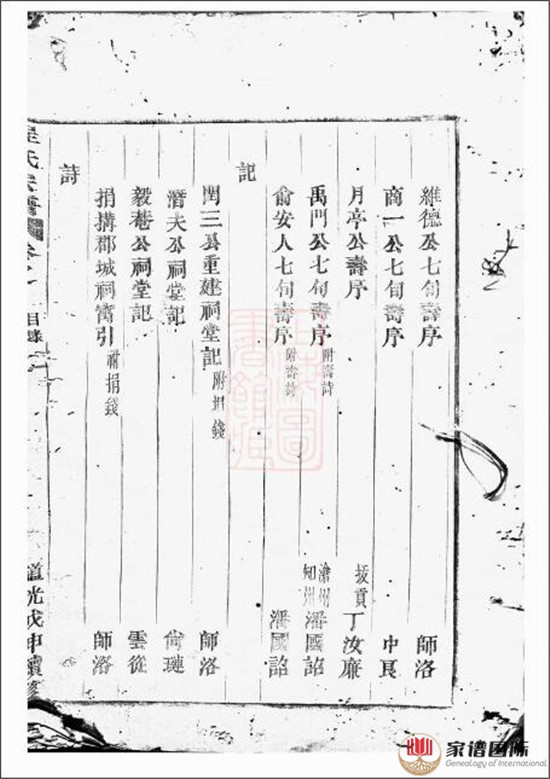 維德公七旬壽序 師洛
商一公七旬壽序
月亭公壽序 拔貢 丁汝廉
禹門公七旬壽序 附壽詩 知州 潘國詔
俞安人七旬壽序 附壽詩 潘國詔
記
閏三公重建祠堂記 附捐錢 師洛
潛夫公祠堂記 尚璉
毅菴公祠堂記 雲從
捐搆郡城祠寓引 附捐錢 師洛
詩
氏宗譜 目錄 道光戊申續修
家谱国际
Genealogy of International